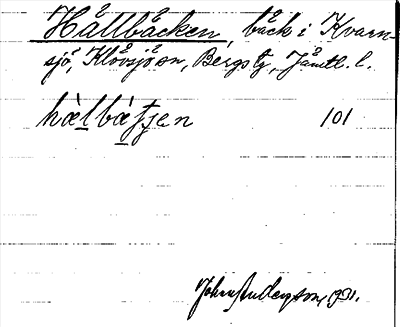 Hållbäcken, bäck i Kvarn-
sjö, Klövsjö sn, Bergs tg, Jämtl. l.
hæ̀lbæ̀ʃʃen 101
John Anderson, 1931.